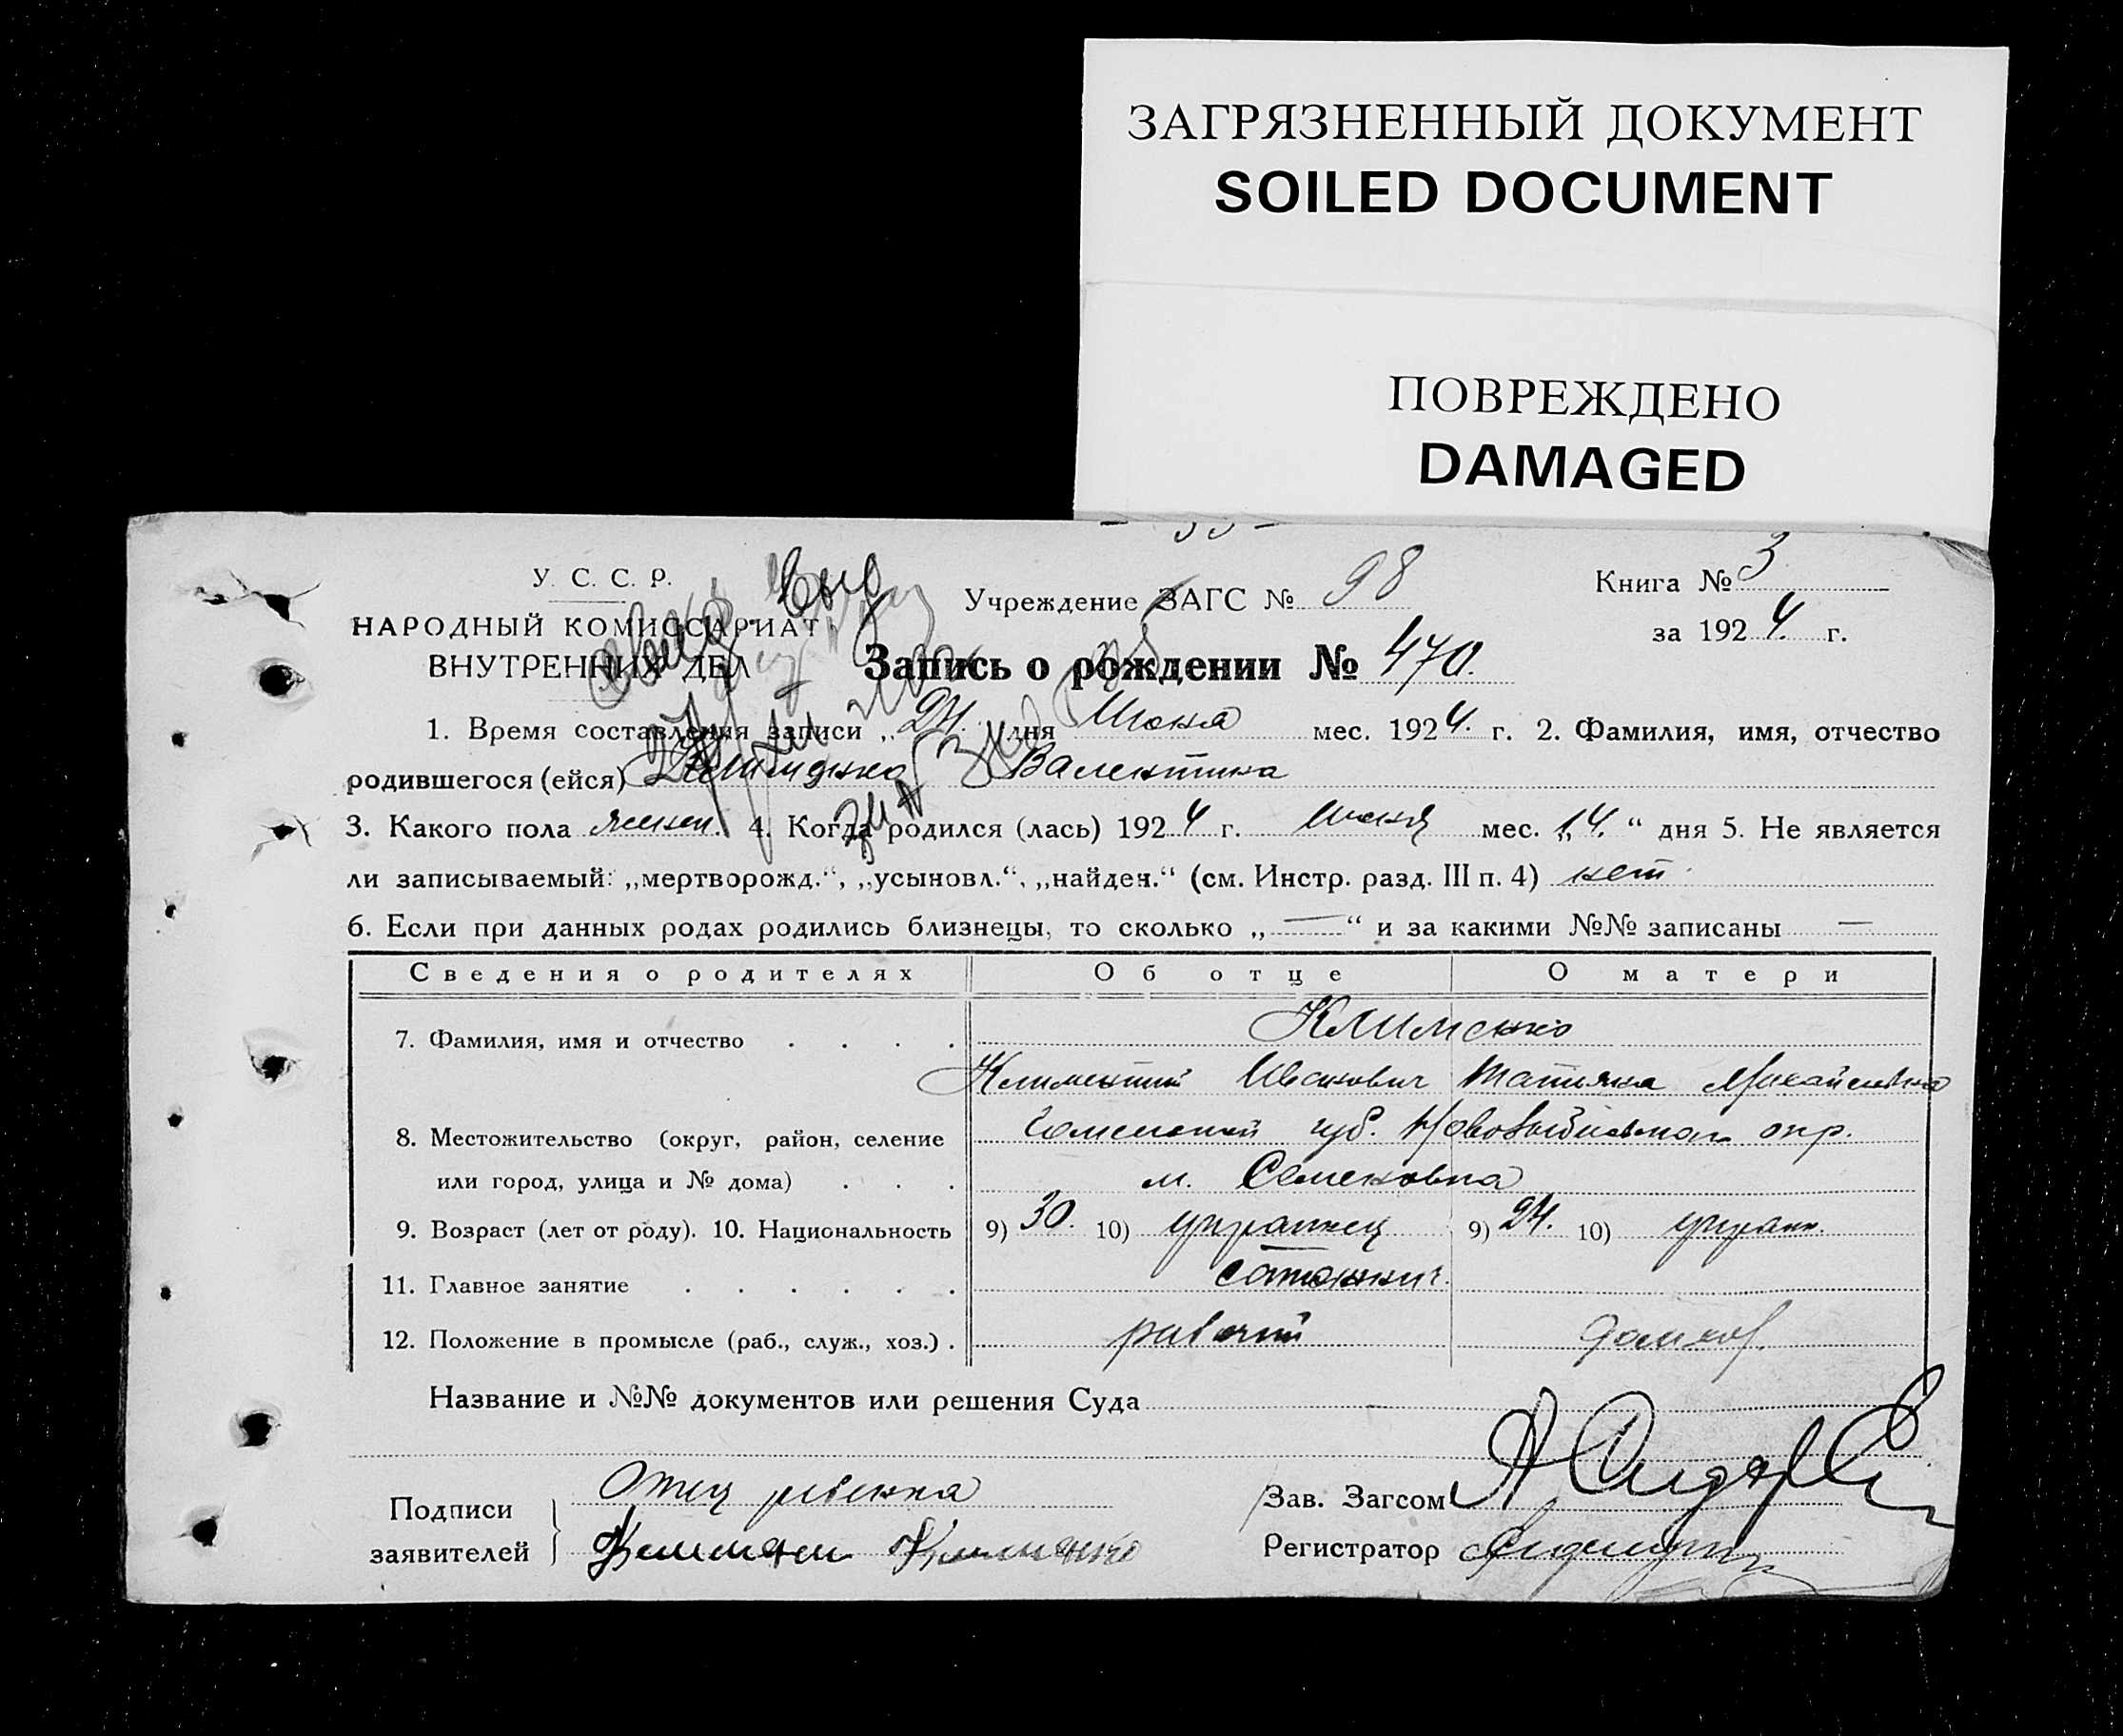 ЗАГРЯЗНЕННЫЙ ДОКУМЕНТ
SOILED DOCUMENT
ПОВРЕЖДЕНО
DAMAGED
У. С. С. Р.
НАРОДНЫЙ КОМИССАРИАТ
ВНУТРЕННИХ ДЕЛ
Учреждение ЗАГС № 98
Книга № 3
за 1924 г.
Запись о рождении № 470.
1. Время составления записи „24. дня Июня мес. 1924. г. 2. Фамилия, имя, отчество
родившегося (ейся) Клименко Валентина
3. Какого пола женск. 4. Когда родился (лась) 1924 г. июня мес. „14.“ дня 5. Не является
ли записываемый: „мертворожд.“, „усыновл.“, „найден.“ (см. Инстр. разд. III п. 4) нет
6. Если при данных родах родились близнецы, то сколько „—“ и за какими №№ записаны —
Сведения о родителях Об отце О матери
7. Фамилия, имя и отчество . . . . Клименко
Климентий Иванович Татьяна Михайловна
8. Местожительство (округ, район, селение Гомельской губ. Нововыбковской окр.
или город, улица и № дома) . . . м. Семеновка
9. Возраст (лет от роду). 10. Национальность 9) 30. 10) украинец 9) 24. 10) украин.
11. Главное занятие . . . . . .
12. Положение в промысле (раб., служ., хоз.) . рабочий домхоз.
Название и №№ документов или решения Суда
Подписи заявителей } Отец ребенка
Клименко
Зав. Загсом
Регистратор